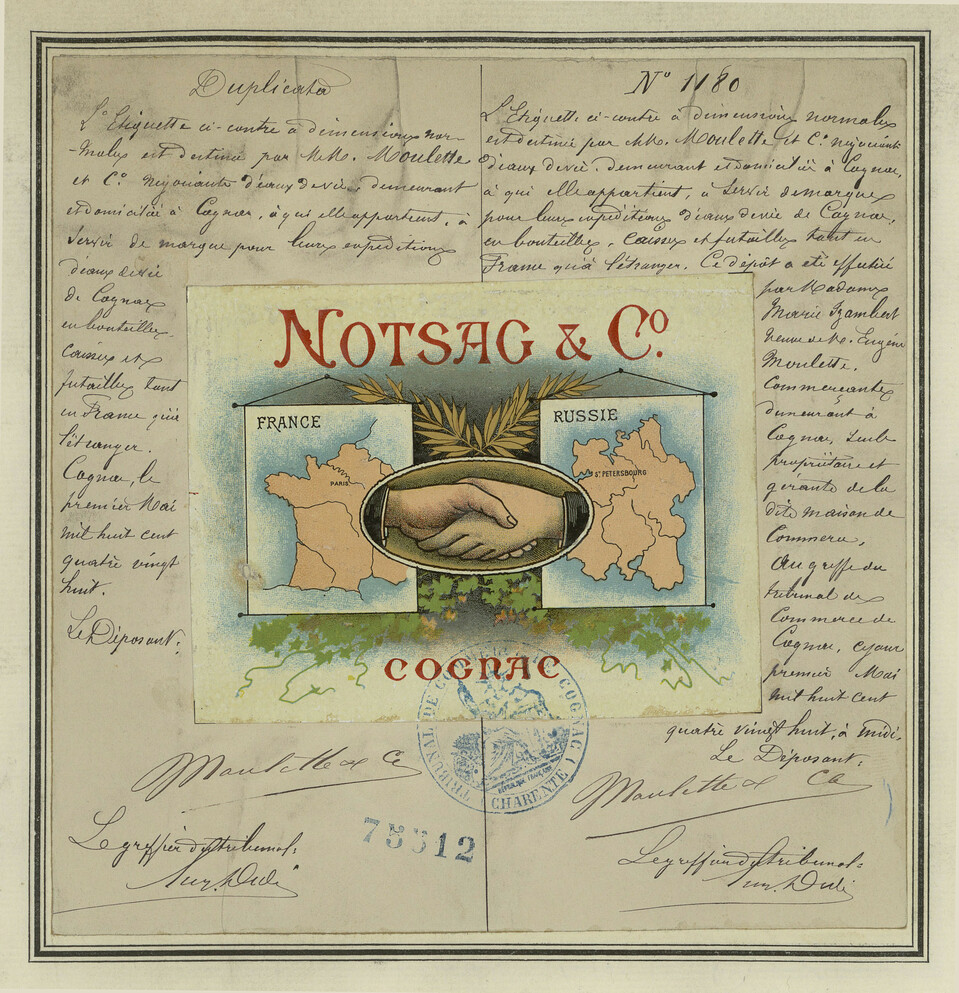 Duplicata
L'Etiquette ci-contre à dimensions nor-
-males est destinée par MM. Moulette
et Co. négociants d'eaux de vie, demeurant
et domiciliés à Cognac, à qui elle appartient, à
servir de marque pour leurs expéditions
d'eaux de vie
de Cognac
en bouteilles,
caisses et
futailles tant
en France qu'à
l'étranger.
Cognac, le
premier Mai
mil huit cent
quatre vingt
huit.
Le Déposant:
Moulette & Co
Le greffier du tribunal:
No 1180
L'Etiquette ci-contre à dimensions normales
est destinée par MM. Moulette et Co. négociants
d'eaux de vie, demeurant et domiciliés à Cognac,
à qui elle appartient, à servir de marque
pour leurs expéditions d'eaux de vie de Cognac,
en bouteilles, caisses et futailles tant en
France qu'à l'étranger. Ce dépôt a été effectué
par Madame
Marie Izambert
veuve de M. Eugène
Moulette,
Commerçante
demeurant à
Cognac, seule
propriétaire et
gérante de la
dite maison de
Commerce,
Au greffe du
tribunal de
Commerce de
Cognac, ce jour
premier Mai
mil huit cent
quatre vingt huit, à midi.
Le Déposant:
Moulette & Co
Le greffier du tribunal:
NOTSAG & Co.
FRANCE
PARIS
RUSSIE
St PETERSBOURG
COGNAC
TRIBUNAL DE COMMERCE DE COGNAC (CHARENTE)
RÉPUBLIQUE FRANÇAISE